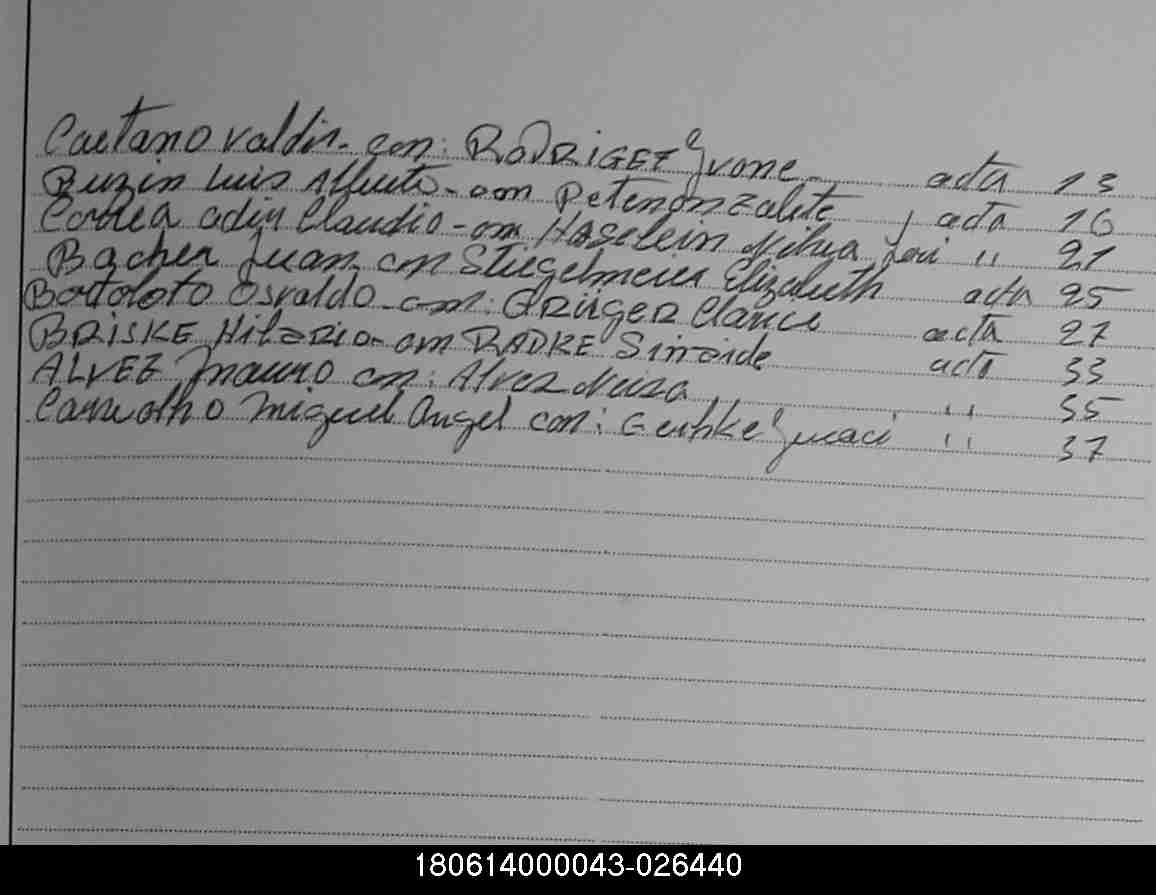 Caetano Valdir - con: RODRIGEZ Yvone - acta 13
Buzin Luis Alberto - con Petenonzalite, acta 16
Correa adin Claudio - con Haselein Nilva Lori " 21
Bacher Juan con Stiegelmeier Elizabeth acta 25
Bortoloto Osvaldo - con: GRÜGER Clarice acta 27
BRISKE Hilario - con RADKE Sinaide acta 33
ALVEZ Mauro con: Alvez Neiza " 35
Carvalho Miguel Angel con: Gehke Juraci " 37
180614000043-026440